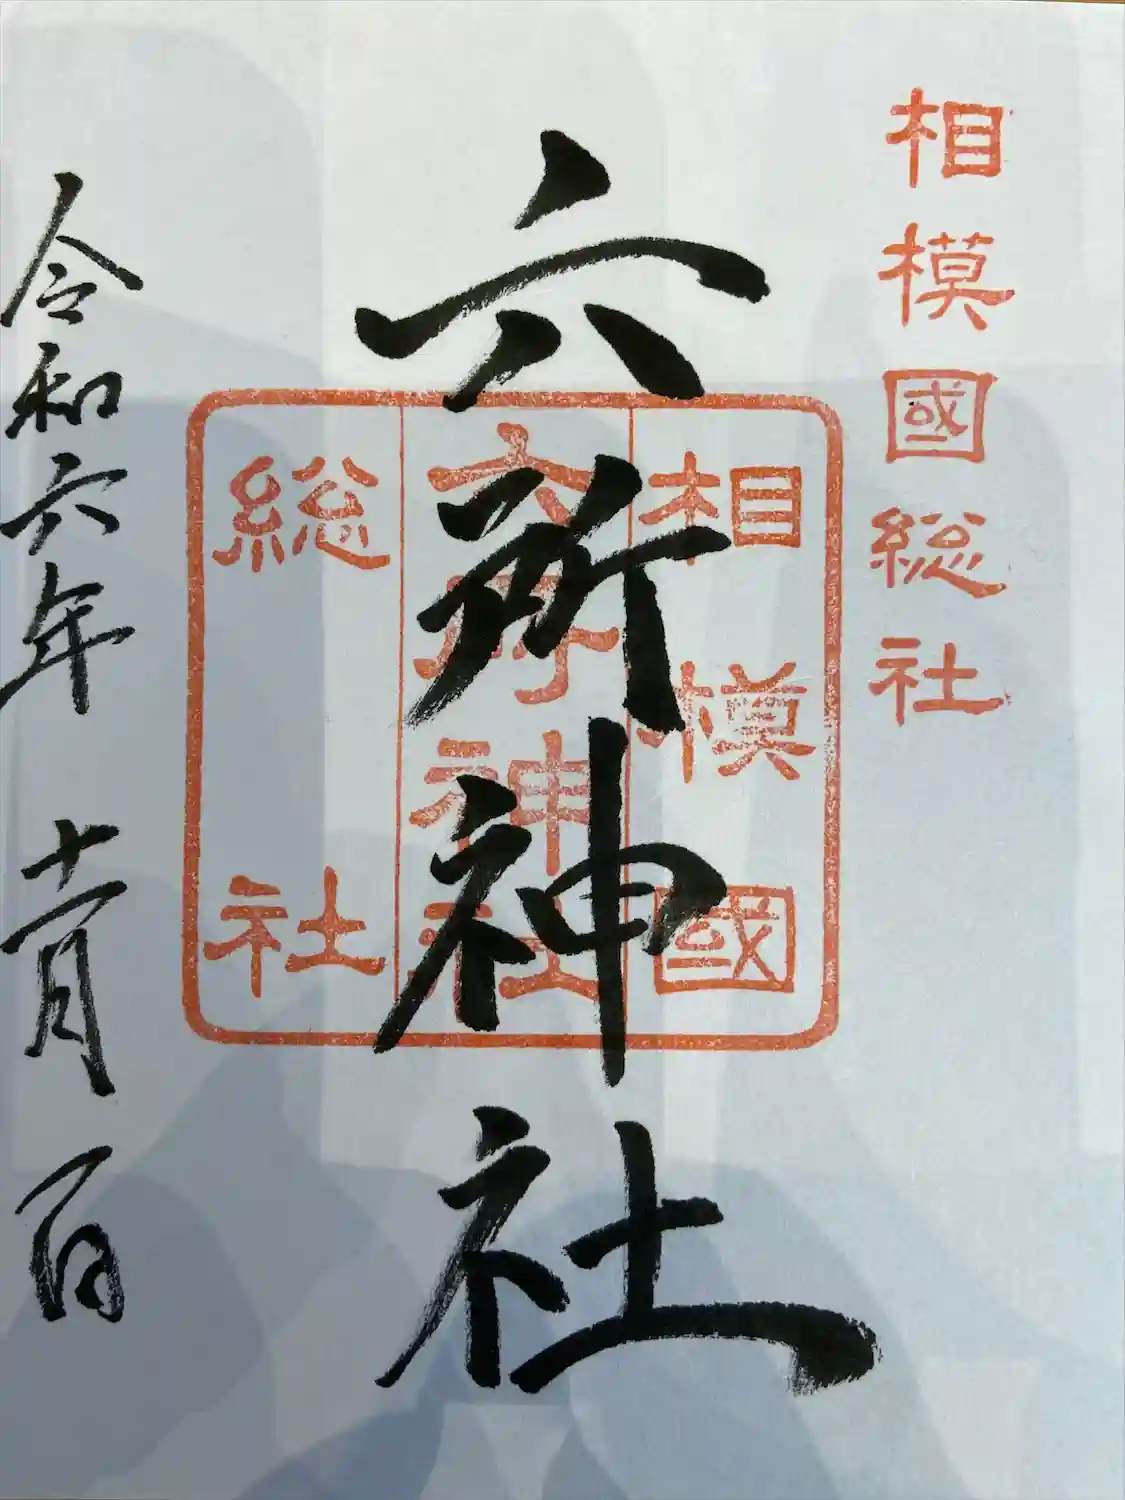 相模國総社
六所神社
相模國
六所神社
総社
令和六年 十一月 一日